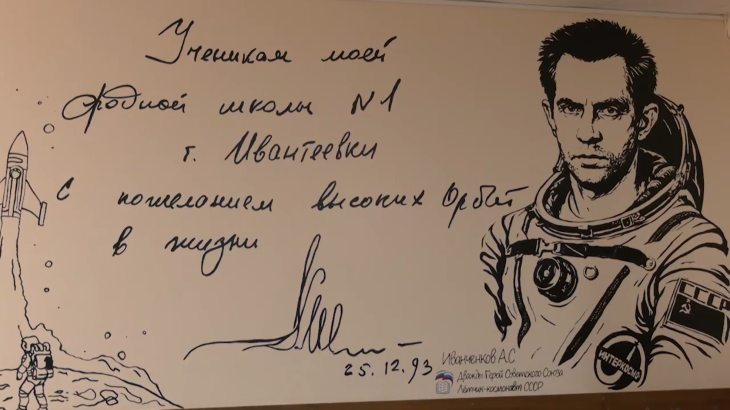 Ученикам моей
родной школы N1
г. Ивантеевки
с пожеланием высоких Орбит
в жизни
25.12.93
СССР
ИНТЕРКОСМОС
Иванченков А.С
Дважды Герой Советского Союза
Лётчик-космонавт СССР